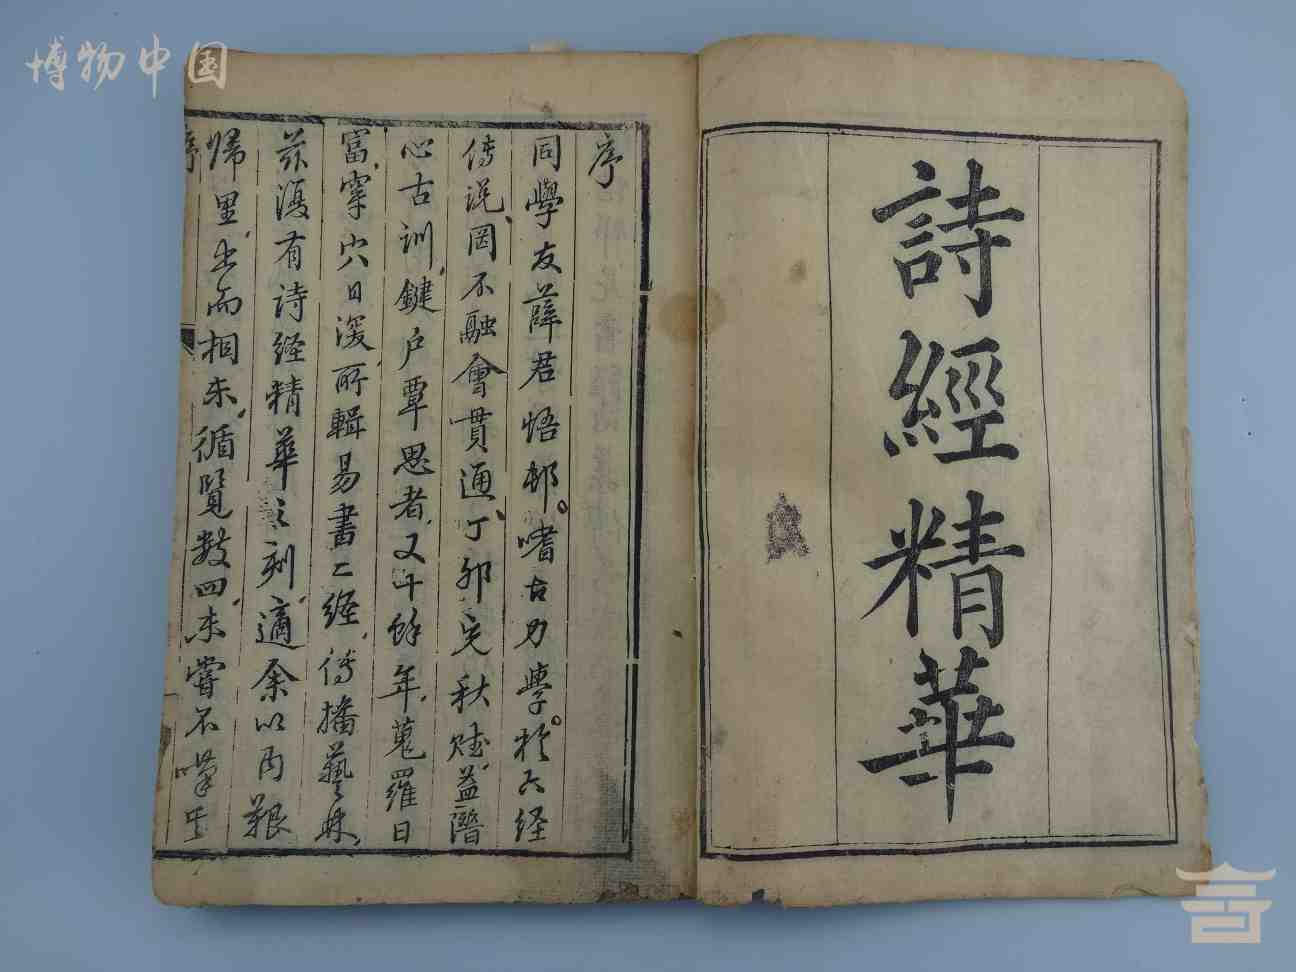 博物中国
詩經精華
序
同學友薛君悟邨。嗜古力學。於六经
傳说、罔不融會貫通、丁卯完秋赋、益潛
心古训、鍵户覃思者、又十餘年、蒐羅日
富、穿穴日深、所輯易書二经、傳播藝林、
兹復有诗经精華之刻、適余以丙艱
歸里、出而相示、循覽数四、未嘗不嘆其
序